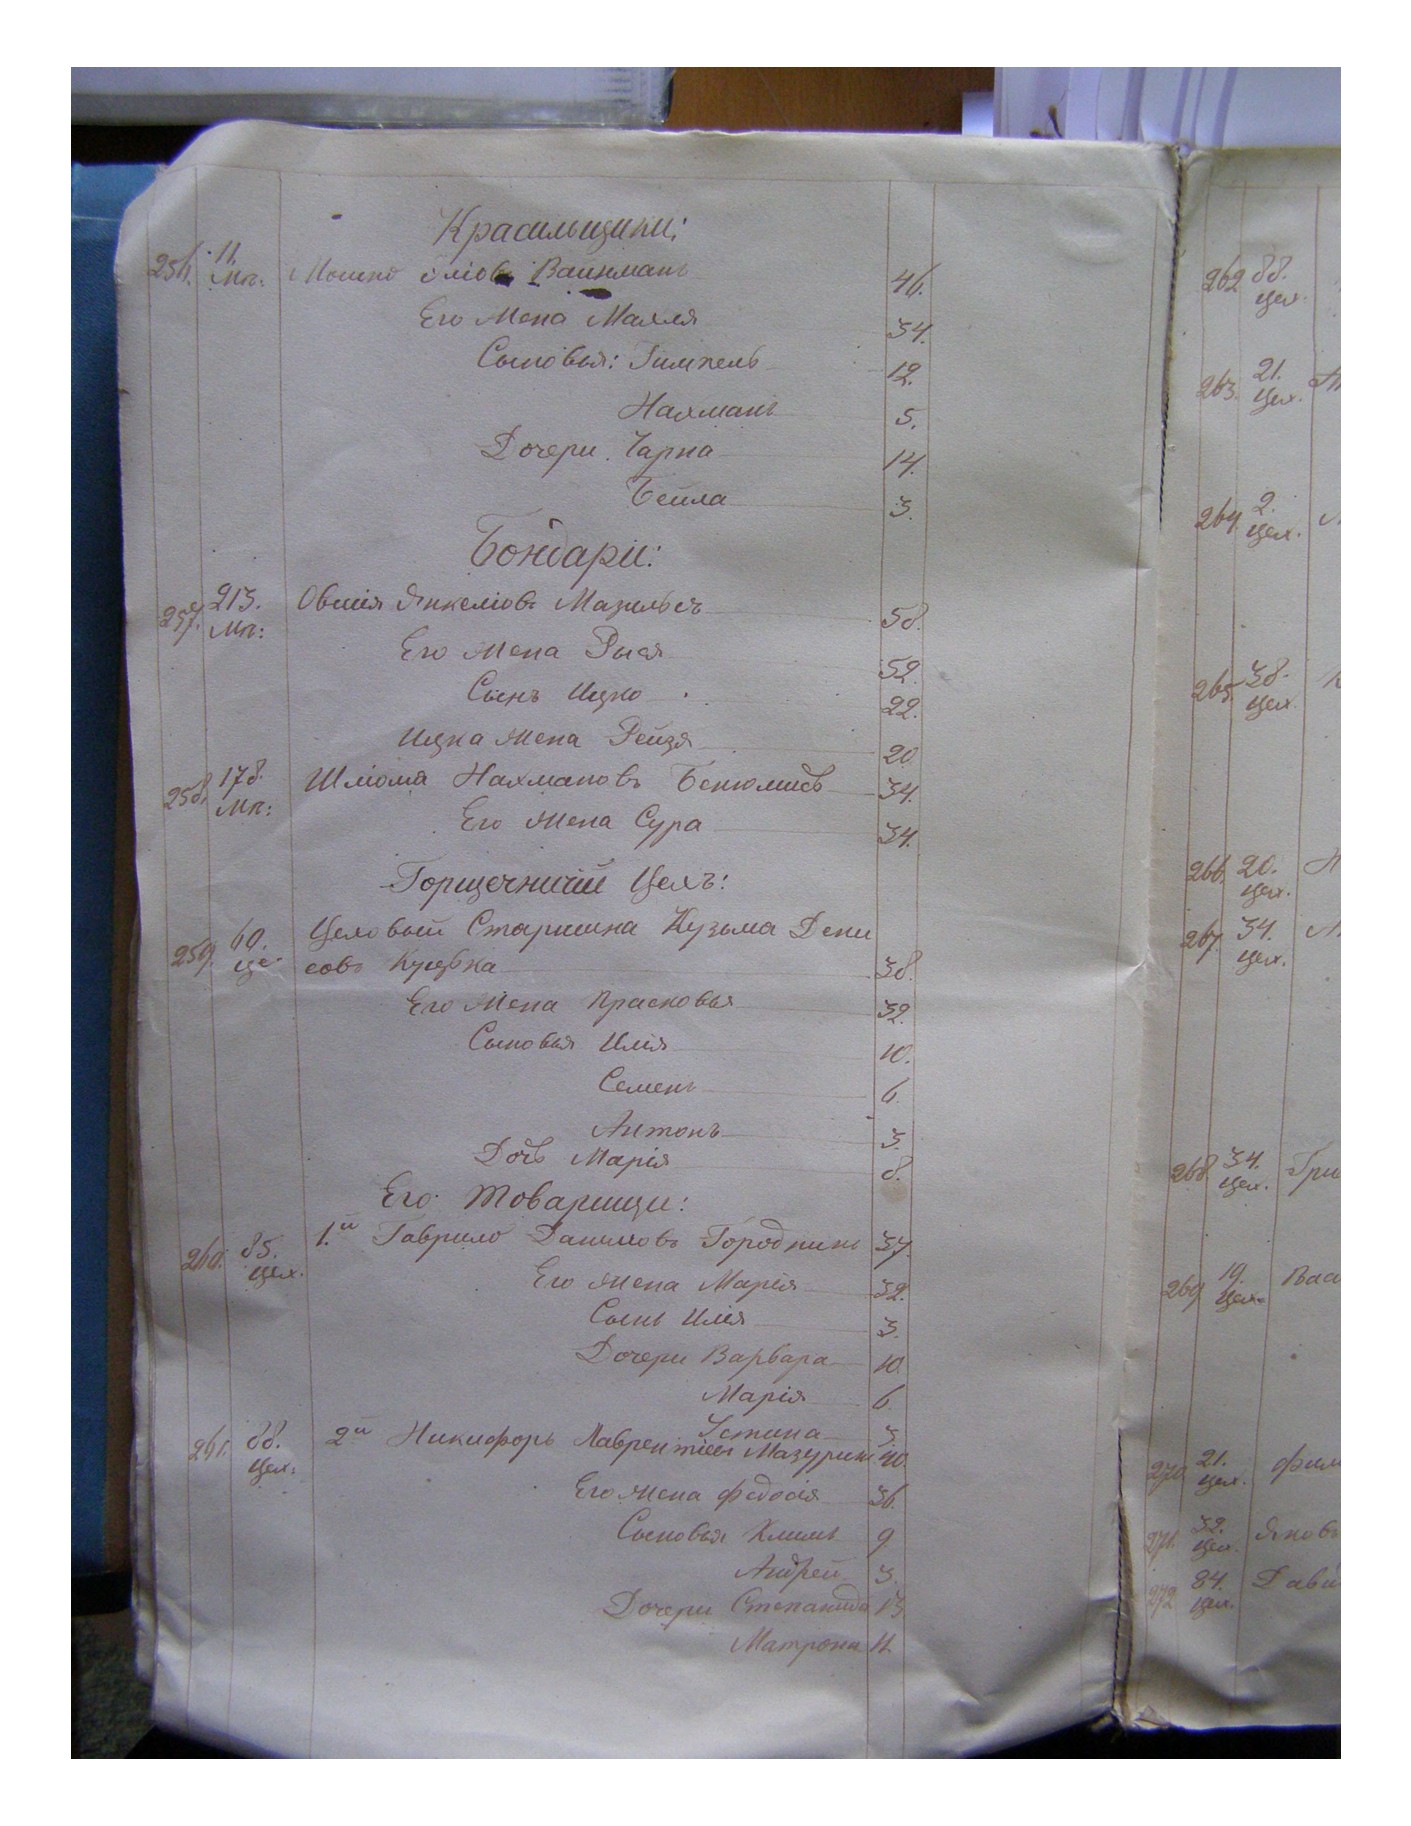 Красильщики:
256. 11. Мѣ: Мошко Вайнманъ 46.
Его жена Маляя 34.
Сыновья: Гимпель 12.
Нахманъ 5.
Дочери Чарна 14.
Бейла 3.
Бондари:
257. 213. Мѣ: Овшія Янкеліовъ 58.
Его жена Рыся 52.
Сынъ Ицко 22.
Ицка жена Рейзя 20
258. 178. Мѣ: Шліома Нахмановъ 34.
Его жена Сура 34.
Горщечничій Цехъ:
259. 60. Цеховый Старшина Кузьма Дени
совъ 38.
Его жена Прасковья 32.
Сыновья Илія 10.
Семенъ 6.
Антонъ 3.
Дочь Марія 8.
Его Товарищи:
260. 85. Цех. 1.й Гаврило Даниловъ Городнинъ 37.
Его жена Марія 32.
Сынъ Илія 3.
Дочери Варвара 10.
Марія 6.
Устина 3.
261. 88. Цех: 2й Никифоръ Лаврентіевъ Мазуринъ 40.
Его жена Федосія 36.
Сыновья Климъ 9
Андрей 3.
Дочери Степанида 13
Матрона 11.
262 88. Цех.
263. 21. Цех.
264. 2. Цех.
265 38. Цех.
266. 20. Цех.
267. 34. Цех.
268. 34. Цех. Гри
269 19. Цех. Васи
270 21. Цех. Фили
271. 32. Цех. Яковъ
272 84. Цех. Дави